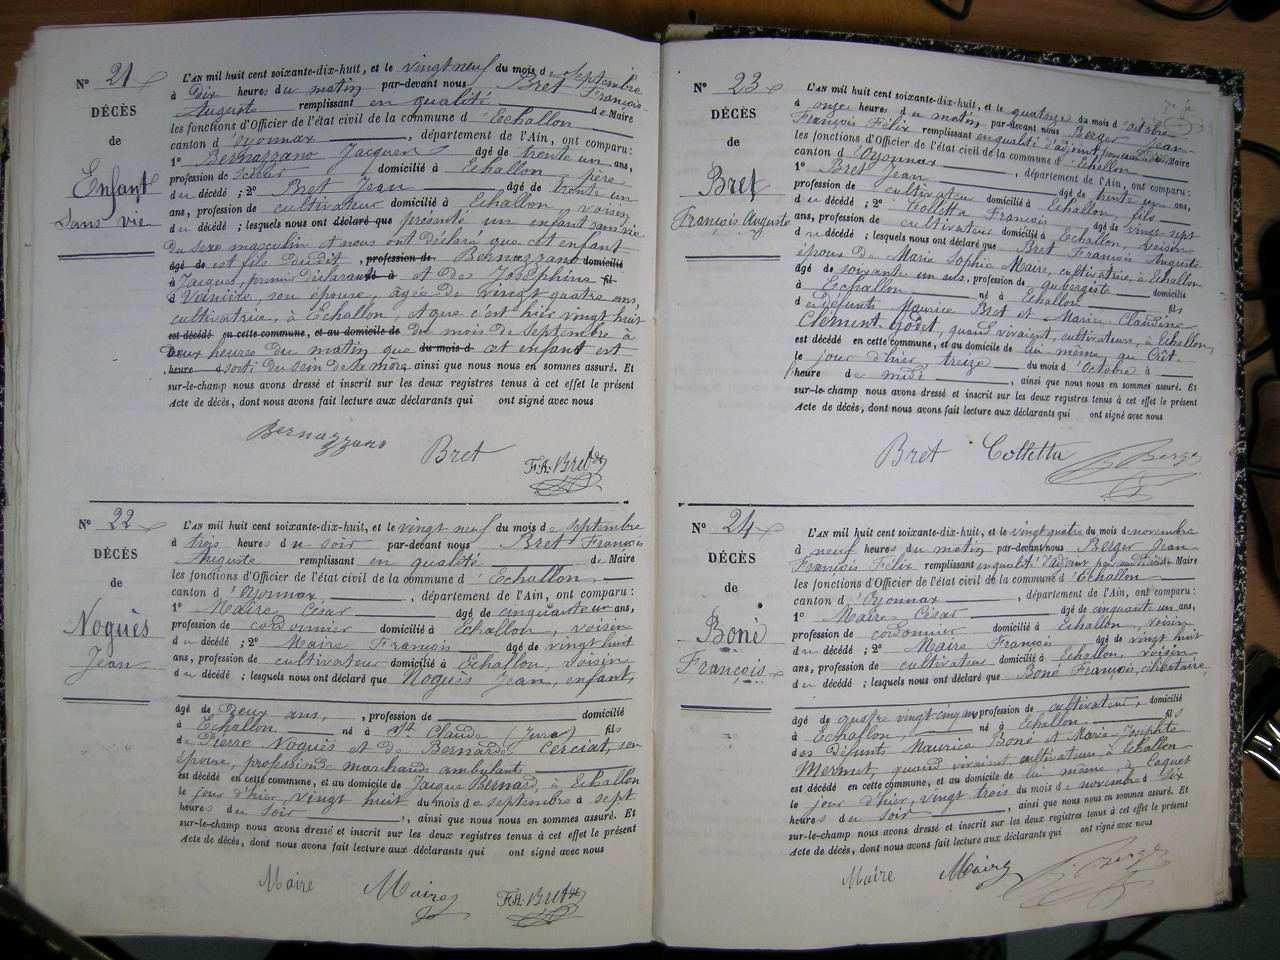 N° 21
DÉCÈS
de
Enfant
Sans vie
L'AN mil huit cent soixante-dix-huit, et le vingt neuf du mois de Septembre
à Dix heures du matin par-devant nous Bret François
Auguste remplissant en qualité de Maire
les fonctions d'Officier de l'état civil de la commune d'Echallon
canton d'Oyonnax, département de l'Ain, ont comparu:
1° Bernazzano Jacques âgé de trente un ans,
profession de domicilié à Echallon, père
du décédé; 2° Bret Jean âgé de trente un
ans, profession de cultivateur domicilié à Echallon, voisin
du décédé; lesquels nous ont déclaré que présenté un enfant sans vie
du sexe masculin et nous ont déclaré que cet enfant
âgé de est fils dudit, profession de Bernazzano domicilié
à Jacques, premier déclarant né à et de Joséphine fil
d Vernitre, son épouse, âgée de vingt quatre ans,
cultivatrice, à Echallon et que c'est hier vingt huit
est décédé en cette commune, et au domicile de du mois de Septembre à
deux heures du matin que du mois d cet enfant est
heure d sorti du sein de la mère ainsi que nous nous en sommes assuré. Et
sur-le-champ nous avons dressé et inscrit sur les deux registres tenus à cet effet le présent
Acte de décès, dont nous avons fait lecture aux déclarants qui ont signé avec nous
Bernazzano Bret F.A. Bret
N° 22
DÉCÈS
de
Noguès
Jean
L'AN mil huit cent soixante-dix-huit, et le vingt neuf du mois de septembre
à trois heures du soir par-devant nous Bret François
Auguste remplissant en qualité de Maire
les fonctions d'Officier de l'état civil de la commune d'Echallon
canton d'Oyonnax, département de l'Ain, ont comparu:
1° Maire César âgé de cinquante un ans,
profession de cordonnier domicilié à Echallon, voisin
du décédé; 2° Maire François âgé de vingt huit
ans, profession de cultivateur domicilié à Echallon, voisin
du décédé; lesquels nous ont déclaré que Noguès Jean, enfant,
âgé de Deux ans, profession de domicilié
à Echallon né à St Claude (Jura) fils
de Pierre Noguès et de Bernard Cerciat, son
épouse, profession de marchands ambulants
est décédé en cette commune, et au domicile de Jacque Bernard, à Echallon
le jour d'hier, vingt huit du mois de septembre à sept
heures du soir, ainsi que nous nous en sommes assuré. Et
sur-le-champ nous avons dressé et inscrit sur les deux registres tenus à cet effet le présent
Acte de décès, dont nous avons fait lecture aux déclarants qui ont signé avec nous
Maire Maire F.A. Bret
N° 23
DÉCÈS
de
Bret
François Auguste
L'AN mil huit cent soixante-dix-huit, et le quatorze du mois d'octobre
à onze heures du matin, par-devant nous Berger Jean
François Félix remplissant en qualité d'adjoint Maire
les fonctions d'Officier de l'état civil de la commune d'Echallon
canton d'Oyonnax, département de l'Ain, ont comparu:
1° Bret Jean âgé de trente un ans,
profession de cultivateur domicilié à Echallon, fils
du décédé; 2° Colletta François âgé de vingt sept
ans, profession de cultivateur domicilié à Echallon, voisin
du décédé; lesquels nous ont déclaré que Bret François Auguste
époux de Marie Sophie Maire, cultivatrice, à Echallon
âgé de soixante un ans, profession de aubergiste domicilié
à Echallon né à Echallon fils
de défunts Maurice Bret et Marie Claudine
Clément Godet, quand vivaient, cultivateurs, à Echallon,
est décédé en cette commune, et au domicile de lui même, au Crêt
le jour d'hier treize du mois d'Octobre à
heure de midi, ainsi que nous nous en sommes assuré. Et
sur-le-champ nous avons dressé et inscrit sur les deux registres tenus à cet effet le présent
Acte de décès, dont nous avons fait lecture aux déclarants qui ont signé avec nous
Bret Colletta Berger
N° 24
DÉCÈS
de
Boné
François
L'AN mil huit cent soixante-dix-huit, et le vingt quatre du mois de novembre
à neuf heures du matin par-devant nous Berger Jean
François Félix remplissant en qualité d'adjoint Maire
les fonctions d'Officier de l'état civil de la commune d'Echallon
canton d'Oyonnax, département de l'Ain, ont comparu:
1° Maire César âgé de cinquante un ans,
profession de cordonnier domicilié à Echallon, voisin
du décédé; 2° Maire François âgé de vingt huit
ans, profession de cultivateur domicilié à Echallon, voisin
du décédé; lesquels nous ont déclaré que Boné François, célibataire,
âgé de quatre vingt cinq ans profession de cultivateur, domicilié
à Echallon, né à Echallon fils
des Défunts Maurice Boné et Marie Josephte
Mermet, quand vivaient cultivateurs à Echallon
est décédé en cette commune, et au domicile de lui même, à Coquet
le jour d'hier, vingt trois du mois de novembre à six
heures du soir, ainsi que nous nous en sommes assuré. Et
sur-le-champ nous avons dressé et inscrit sur les deux registres tenus à cet effet le présent
Acte de décès, dont nous avons fait lecture aux déclarants qui ont signé avec nous
Maire Maire Berger